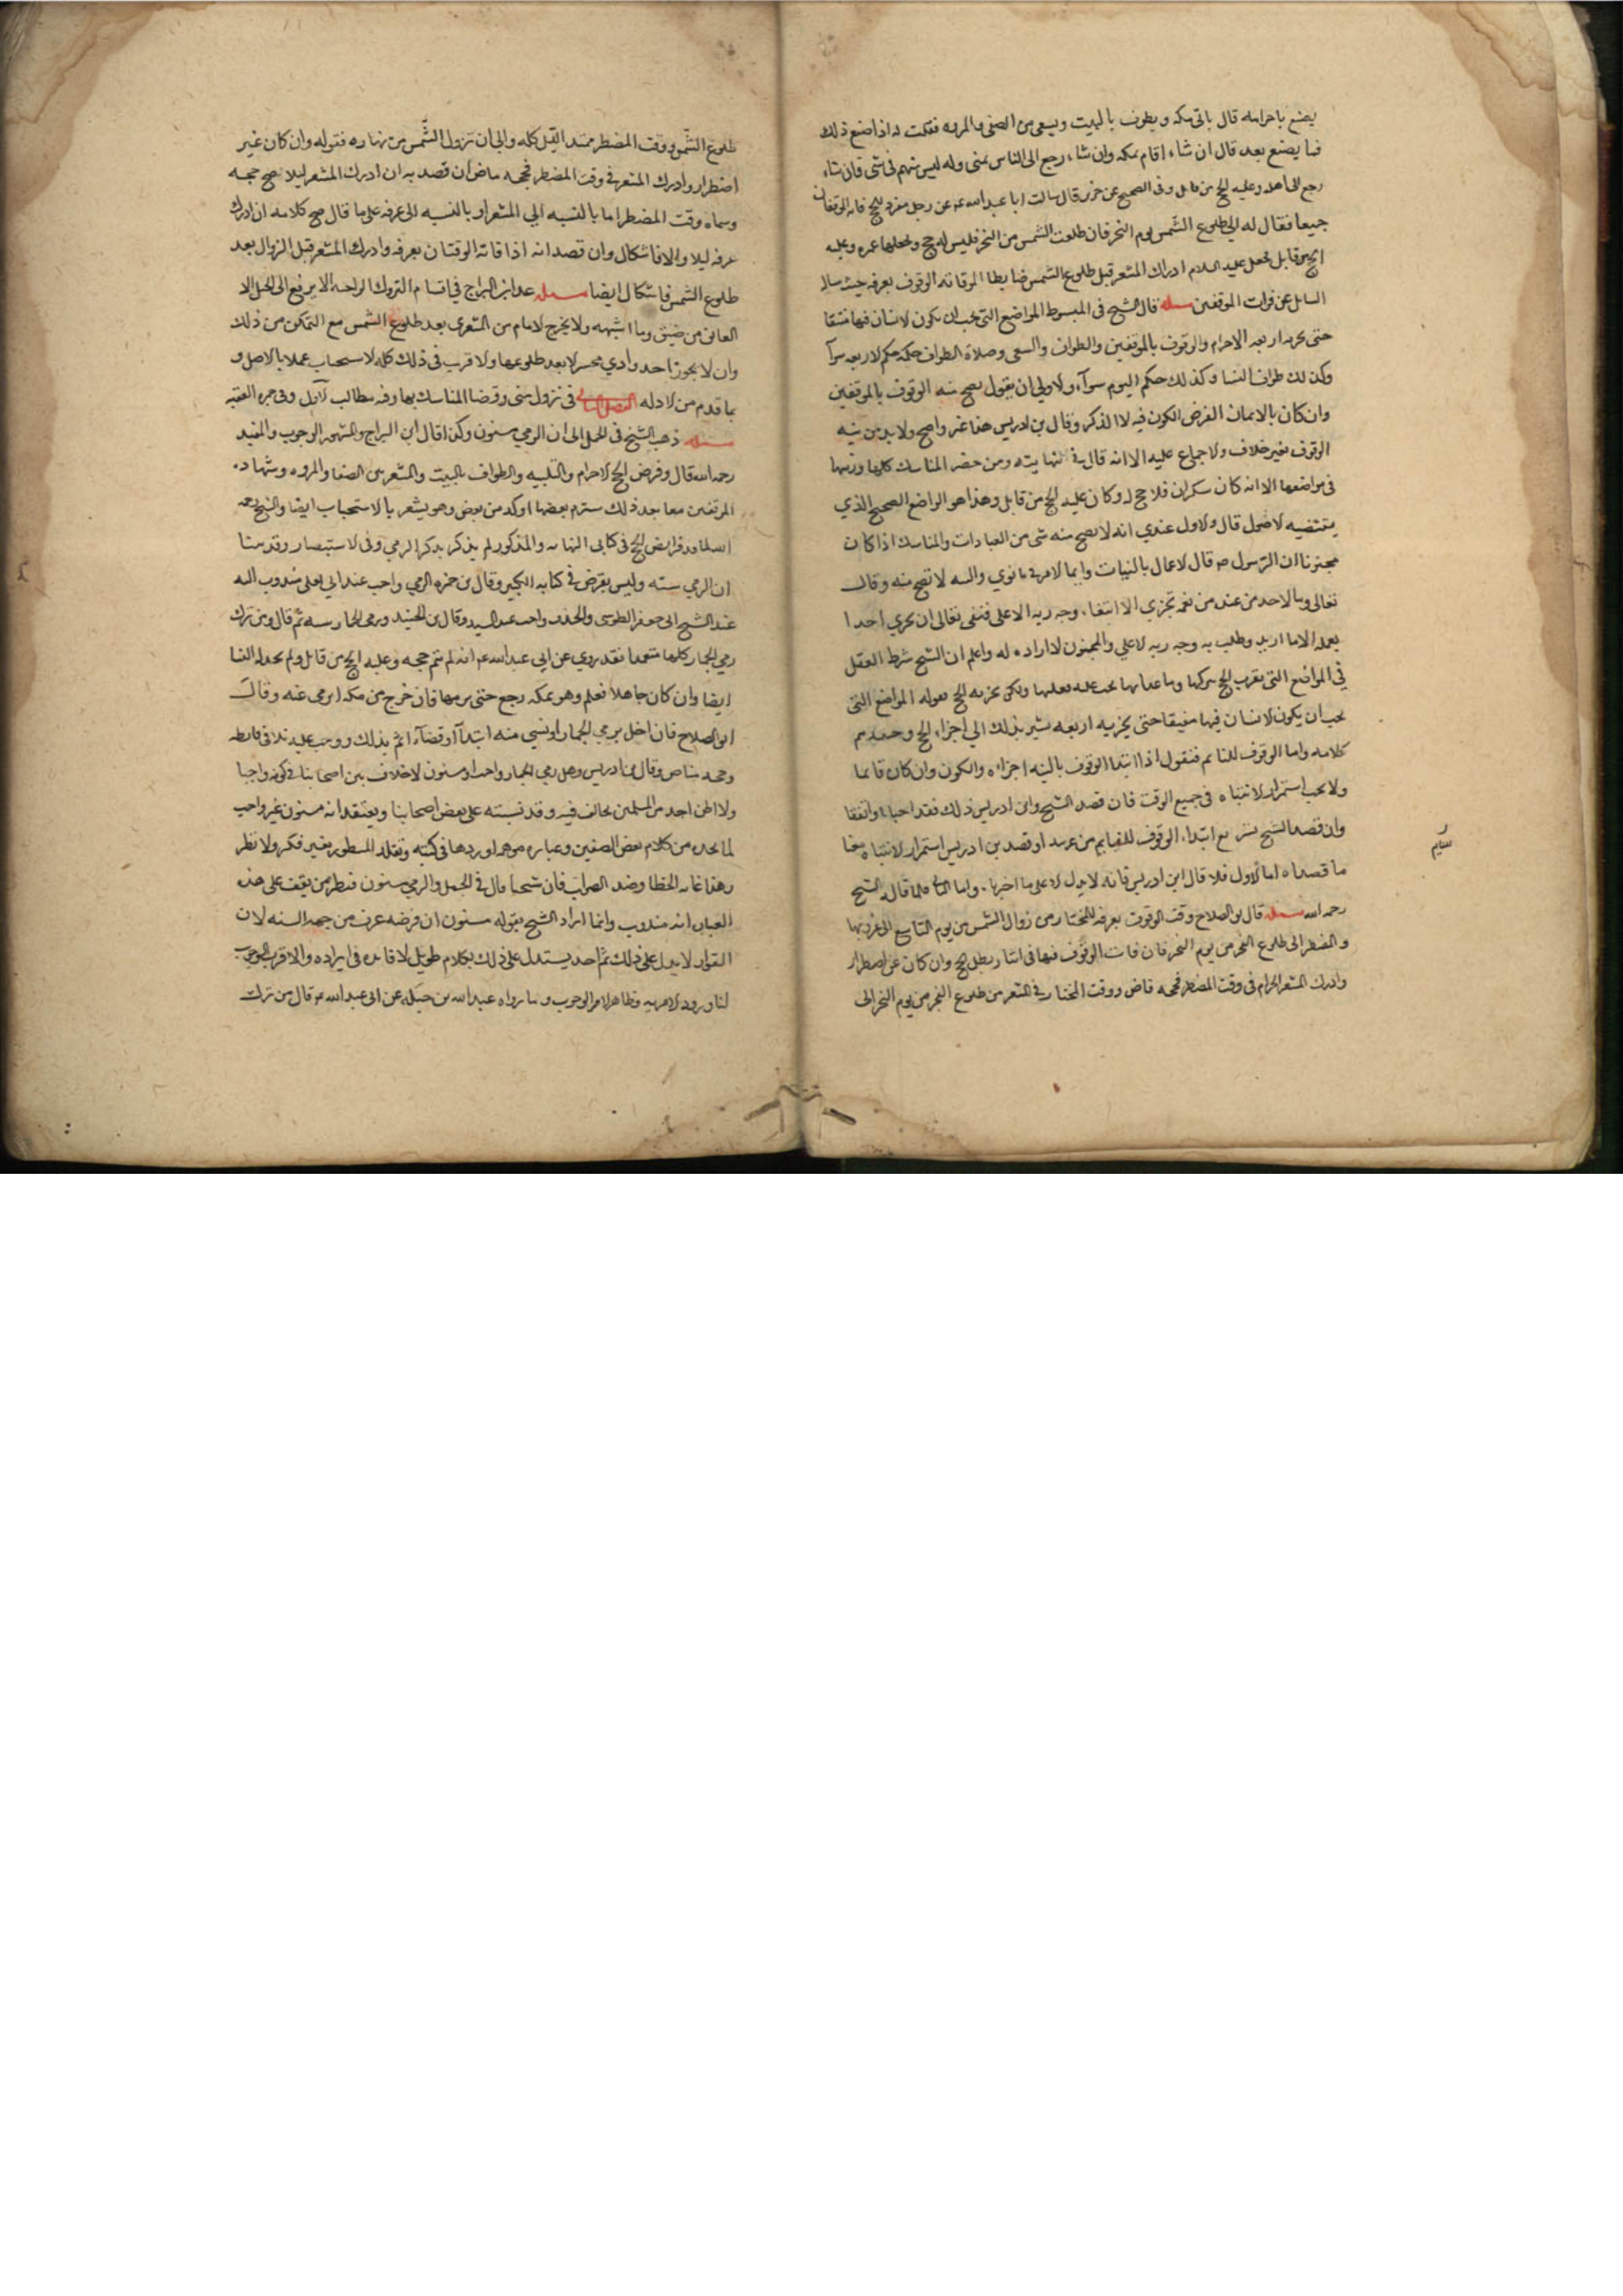 يصنع باحرامه قال ياتى مكه ويطوف بالبيت ويسعى من الصفى والمروه فقلت له اذا صنع ذلك
فما يصنع بعد قال ان شاء اقام بمكه وان شاء رجع الى الناس بمنى وله ليس منهم فى شى فان شاء
رجع الى اهله وعليه الحج من قابل وفى الصحيح عن حريز قال سالت ابا عبدالله عم عن رجل مفرد للحج فاته الموقفان
جميعا فقال له الى طلوع الشمس يوم النحر فان طلعت الشمس من النحر فليس له حج ويجعلها عمره وعليه
الحج من قابل فجعل عليه السلام ادراك المشعر قبل طلوع الشمس ضابطا لمن فاته الوقوف بعرفه حيث ساله
السايل عن فوات الموقفين مسله قال الشيخ فى المبسوط المواضع التى يجب ان يكون لانسان فيها مفيقا
حتى يجزيه اربعه الاحرام والوقوف بالموقفين والطواف والسعى وصلاة الطواف حكمه حكم لاربعه سوآ
وكذلك طواف النسا وكذلك حكم النوم سوآء ولاولى ان يقول يصح منه الوقوف بالموقفين
وان كان نايما لان الغرض الكون فيه لا الذكر وقال بن ادريس هذا غير واضح ولا بد من نيه
الوقوف بغير خلاف ولاجماع عليه الا انه قال فى نهايته ومن حضر المناسك كلها ورتبها
فى مواضعها الا انه كان سكران فلا حج له وكان عليه الحج من قابل وهذا هو الواضع الصحيح الذي
يقتضيه لاصول قال ولاول عندي انه لا يصح منه شى من العبادات والمناسك اذا كان
مجنونا لان الرسول ص قال لاعمال بالنيات وانما لامرئ ما نوي والنيه لا تصح منه وقال
تعالى وما لاحد من عنده من نعمه تجزى الا ابتغاء وجه ربه الاعلى فنفى تعالى ان يجزي احدا
بعمله الا ما اريد وطلب به وجه ربه لاعلي والمجنون لا اراده له واعلم ان الشيخ شرط العقل
فى المواضع التى يقرب الحج بتركها وما عداها يجب عليه فعلها ولكن يجزيه الحج بقوله المواضع التى
يجب ان يكون لانسان فيها مفيقا حتى يجزيه اربعه يشير بذلك الي اجزاء الحج
كلامه واما الوقوف للنايم فنقول اذا ابتدا الوقوف بالنيه اجزاه والكون وان كان نايما
ولا يجب استمرار لانتباه فى جميع الوقت فان قصد الشيخ وابن ادريس ذلك فقد اصابا واتفقا
وان قصد الشيخ ابتداء الوقوف للنايم من غير نيه او قصد بن ادريس استمرار لانتباه منعنا
ما قصداه اما لاول فلا قال ابن ادريس فانه لا يدل لا على ما اخترناه واما الثانى فلما قال الشيخ
رحمه الله مسله قال ابو الصلاح وقت الوقوف بعرفه للمختار من زوال الشمس من يوم التاسع الى غروبها
والمضطر الى طلوع الفجر من يوم النحر فان فات الوقوف فيها بطل الحج وان كان عن اضطرار
وادرك المشعر الحرام فى وقت المضطر فحجه ماض ووقت المختار فى المشعر من طلوع الفجر من يوم النحر الى
طلوع الشمس ووقت المضطر ممتد الليل كله والى ان تزول الشمس من نهاره فقوله وان كان غير
اضطرار وادرك المشعر فى وقت المضطر فحجه ماض ان قصد به ان ادرك المشعر ليلا صح حجه
وسماه وقت المضطر اما بالنسبه الى المشعر او بالنسبه الى عرفه على ما قال صح كلامه ان ادرك
عرفه ليلا والا فاشكال وان قصد انه اذا فاته الوقتان بعرفه وادرك المشعر قبل الزوال بعد
طلوع الشمس فاشكال ايضا مسله عد ابن البراج فى اقسام التروك الواجبه الا يرتفع الى الجبل الا
العاىق من ضيق وما اشبهه ولا يخرج لامام من المشعر الى بعد طلوع الشمس مع التمكن من ذلك
وان لا يجوز احد وادي محسر لا بعد طلوعها ولاقرب فى ذلك كله لاستحباب عملا بالاصل و
بما تقدم من لادله الفصل الثالث فى نزول منى وقضا المناسك بها وفيه مطالب لاول وفى جمره العقبه
مسله ذهب الشيخ فى الجمل الى ان الرمي مسنون وكذا قال ابن البراج والمشهور الوجوب والمفيد
رحمه الله قال وفرض الحج لاحرام والتلبيه والطواف بالبيت والسعى بين الصفا والمروه وشهاده
الموقفين وما بعد ذلك سنن بعضها اوكد من بعض وهو يشعر بالاستحباب ايضا والشيخ رحمه
الله لما عد فرايض الحج فى كتابى النهايه والمذكور لم يذكر بذكر الرمي وفى لاستبصار وقد بينا
ان الرمي سنه وليس بفرض فى كتابه الكبير وقال بن حمزه الرمي واجب عند ابى يعلى مندوب اليه
عند الشيخ ابى جعفر الطوسى وقال بن الجنيد ورمى الجمار سنه ثم قال ومن ترك
رمي الجمار كلها متعمدا فقد روي عن ابي عبدالله عم انه لم يتم حجه وعليه الحج من قابل ولم تحل له النسا
ايضا وان كان جاهلا فعلم وهو بمكه رجع حتى يرميها فان خرج من مكه ارمى عنه وقال
ابو الصلاح فان اخل برمي الجمار او نسى منه ابتدآ او قضآء اثم بذلك ووجب عليه تلافى فارطه
وحجه ماض وقال بن ادريس وهل رمي الجمار واجب او مسنون لا خلاف بين اصحابنا فى كونه واجبا
ولا اظن احد من المسلمين يخالف فيه وقد نسبته على بعض اصحابنا ويعتقد انه مسنون غير واجب
لما يجده من كلام بعض المصنفين وعباره موهمه اوردها فى كتبه وتقلد المسطور بغير فكر ولا نظر
وهذا غايه الخطا وضد الصواب فان شيخنا قال فى الجمل والرمي مسنون فيظن من يقف على هذه
العباره انه مندوب وانما اراد الشيخ بقوله مسنون ان فرضه عرف من جهه السنه لان
القران لا يدل على ذلك ثم اخذ يستدل على ذلك بكلام طويل لا فايده فى ايراده والاقرب الوجوب
لنا ورود لامر به وظاهر لامر الوجوب وما رواه عبدالله بن جبله عن ابى عبدالله عم قال من ترك